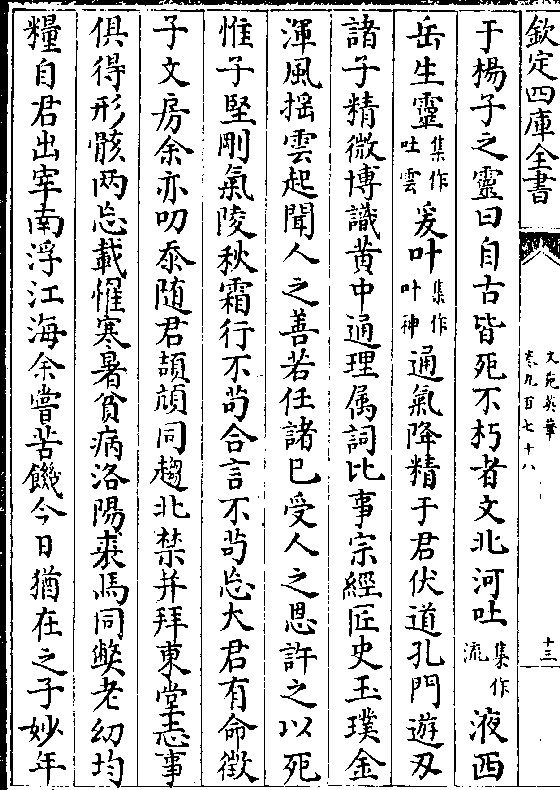 欽定四庫全書
文苑英華
卷九百七十八
十三
于楊子之靈曰自古皆死不朽者文北河吐集作流液西
岳生靈集作吐雲爰叶集作叶神通氣降精于君伏道孔門遊刃
諸子精微博識黄中通理属詞比事宗經匠史玉璞金
渾風揺雲起聞人之善若任諸巳受人之恩許之以死
惟子堅剛氣陵秋霜行不茍合言不茍忘大君有命徵
子文房余亦叨忝随君頡頏同趨北禁并拜東堂志事
俱得形骸兩忘載惟寒暑貧病洛陽裘馬同弊老幼均
糧自君出宰南浮江海余嘗苦饑今日猶在之子妙年